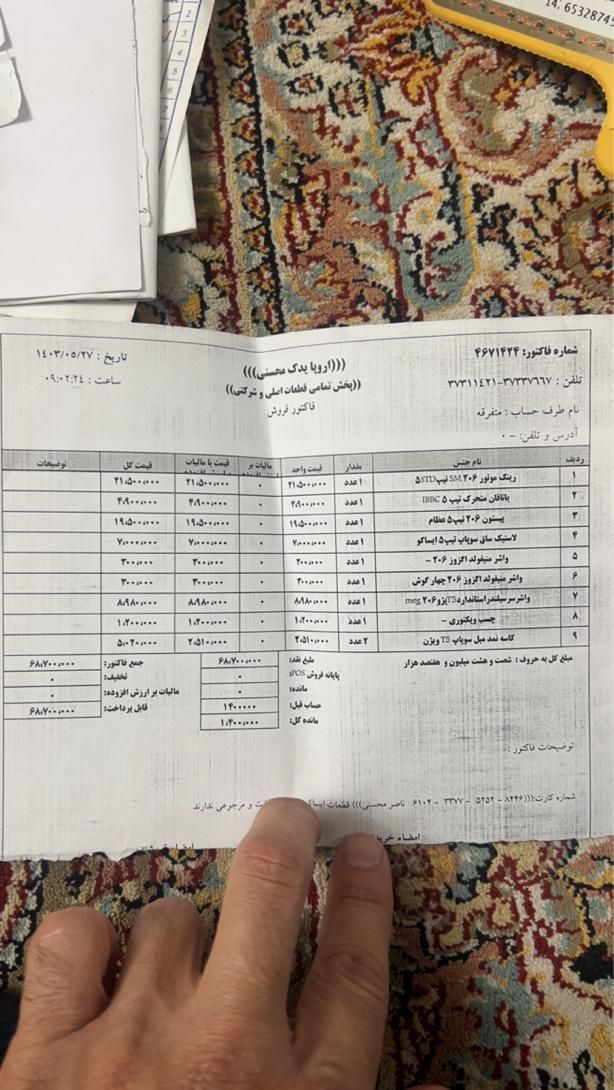 14. 6532874
2
3
4
5
6
7
شماره فاکتور: ۴۶۷۱۴۲۴
(((اروپا یدک محسنی)))
تاریخ : ۱۴۰۳/۰۵/۲۷
تلفن : ۳۷۳۳۷۶۶۷-۳۷۳۱۱۴۲۱
((پخش تمامی قطعات اصلی و شرکتی))
ساعت : ۰۹:۰۲:۲۴
نام طرف حساب : متفرقه
فاکتور فروش
آدرس و تلفن: - ۰
ردیف نام جنس مقدار قیمت واحد مالیات بر قیمت با مالیات قیمت کل توضیحات
۱ رینگ موتور ۲۰۶ SM تیپ5STD ۱ عدد ۲۱،۵۰۰،۰۰۰ ۰ ۲۱،۵۰۰،۰۰۰ ۲۱،۵۰۰،۰۰۰
۲ یاتاقان متحرک تیپ ۵ IBBC ۱ عدد ۴،۹۰۰،۰۰۰ ۰ ۴،۹۰۰،۰۰۰ ۴،۹۰۰،۰۰۰
۳ پیستون ۲۰۶ تیپ۵ عظام ۱ عدد ۱۹،۵۰۰،۰۰۰ ۰ ۱۹،۵۰۰،۰۰۰ ۱۹،۵۰۰،۰۰۰
۴ لاستیک ساق سوپاپ تیپ۵ ایساکو ۱ عدد ۷،۰۰۰،۰۰۰ ۰ ۷،۰۰۰،۰۰۰ ۷،۰۰۰،۰۰۰
۵ واشر منیفولد اگزوز ۲۰۶ - ۱ عدد ۳۰۰،۰۰۰ ۰ ۳۰۰،۰۰۰ ۳۰۰،۰۰۰
۶ واشر منیفولد اگزوز ۲۰۶ چهار گوش ۱ عدد ۳۰۰،۰۰۰ ۰ ۳۰۰،۰۰۰ ۳۰۰،۰۰۰
۷ واشرسرسیلنداستانداردT5پژو۲۰۶ meg ۱ عدد ۸،۹۸۰،۰۰۰ ۰ ۸،۹۸۰،۰۰۰ ۸،۹۸۰،۰۰۰
۸ چسب ویکتوری - ۱ عدد ۱،۲۰۰،۰۰۰ ۰ ۱،۲۰۰،۰۰۰ ۱،۲۰۰،۰۰۰
۹ کاسه نمد میل سوپاپ T5 ویژن ۲ عدد ۲،۵۱۰،۰۰۰ ۰ ۲،۵۱۰،۰۰۰ ۵،۰۲۰،۰۰۰
مبلغ کل به حروف : شصت و هشت میلیون و هفتصد هزار
مبلغ نقد: ۶۸،۷۰۰،۰۰۰
جمع فاکتور: ۶۸،۷۰۰،۰۰۰
پایانه فروش POS: ۰
تخفیف: ۰
مانده: ۰
مالیات بر ارزش افزوده: ۰
حساب قبل: ۱۴۰۰۰۰۰
قابل پرداخت: ۶۸،۷۰۰،۰۰۰
مانده کل: ۱،۴۰۰،۰۰۰
توضیحات فاکتور :
شماره کارت:(((۸۴۴۶ - ۵۲۵۲ - ۳۳۷۷ - ۶۱۰۴ ناصر محسنی))) قطعات ایساکو و مرجوعی ندارند
امضاء